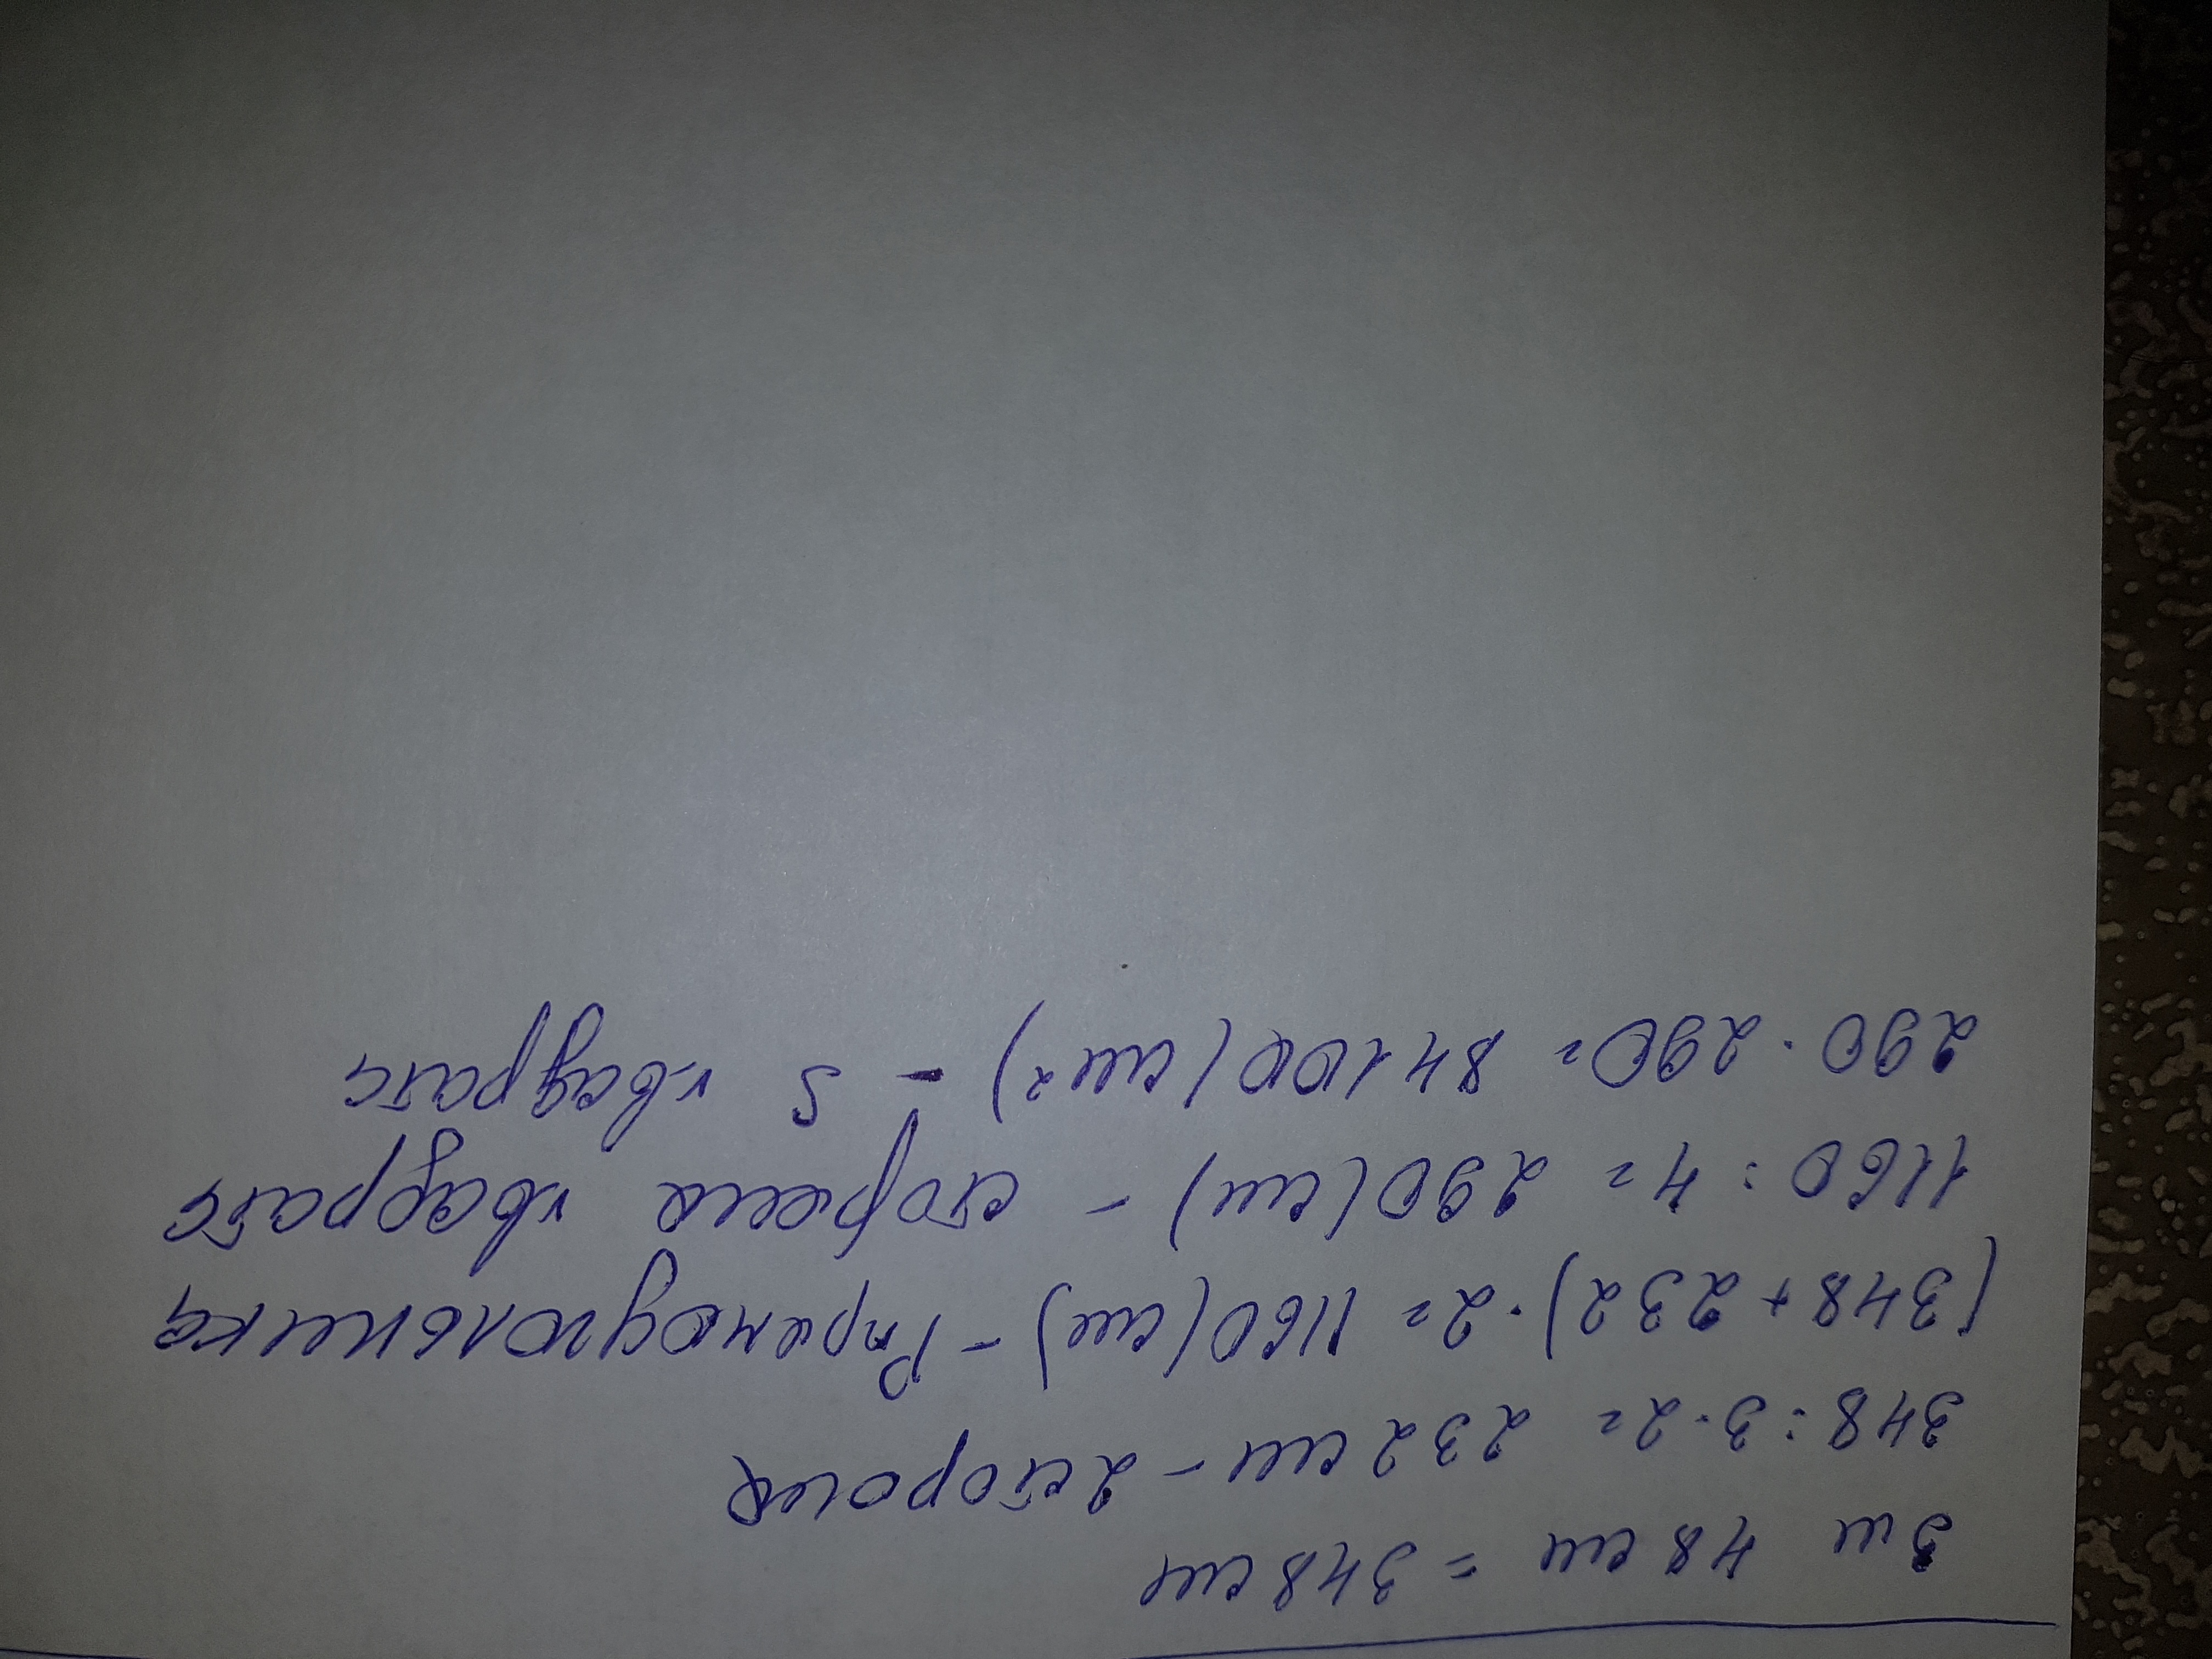 3 м 48 см = 348 см
348 : 3 · 2 = 232 см - 2 сторона
(348 + 232) · 2 = 1160 (см) - P прямоугольника
1160 : 4 = 290 (см) - сторона квадрата
290 · 290 = 84100 (см²) - S квадрата